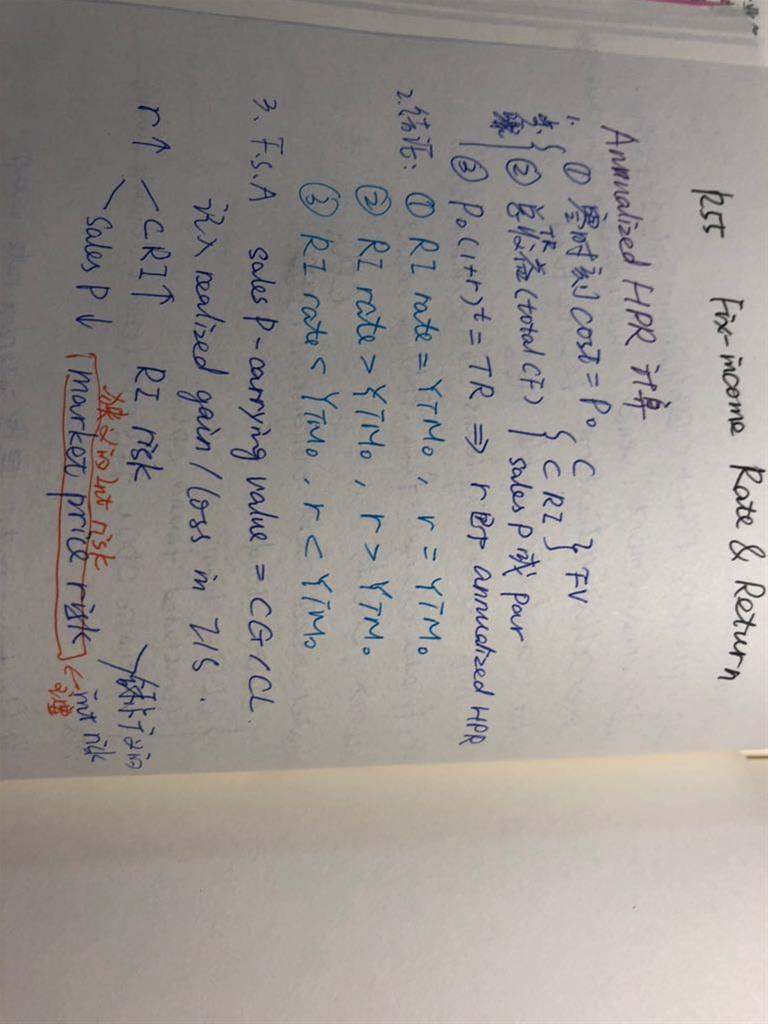 R55 Fix-income Rate & Return
Annualized HPR 计算
1. 步骤 { ① 零时刻 cost = P₀ { C
② 总收益 TR (total CF) { CRI } FV
sales P 或 par
③ P₀(1+r)ᵗ = TR ⇒ r 即 annualized HPR
2. 结论: ① RI rate = YTM₀, r = YTM₀
② RI rate > YTM₀, r > YTM₀
③ RI rate < YTM₀, r < YTM₀
3. F.S.A sales P - carrying value = CG/CL.
计入 realized gain / loss in I/S.
r↑ CRI↑ RI risk
Sales P↓ market price risk ← int risk
int risk